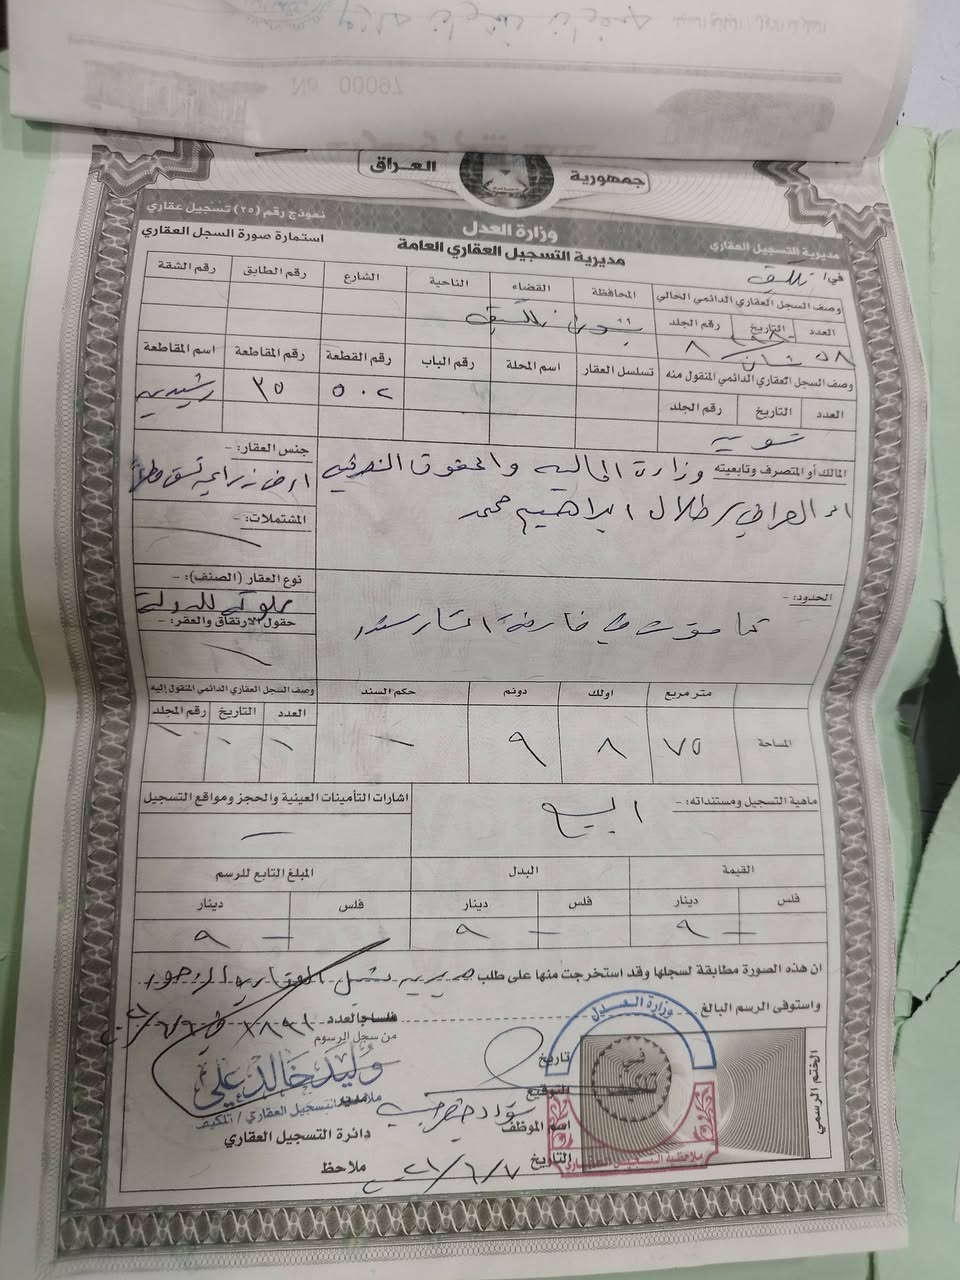 جمهورية العراق
وزارة العدل
نموذج رقم (٢٥) تسجيل عقاري
مديرية التسجيل العقاري
مديرية التسجيل العقاري العامة
استمارة صورة السجل العقاري
في /
وصف السجل العقاري الدائمي الحالي المحافظة القضاء الناحية الشارع رقم الطابق رقم الشقة
العدد التاريخ رقم الجلد
٥٨ ٨
وصف السجل العقاري الدائمي المنقول منه تسلسل العقار اسم المحلة رقم الباب رقم القطعة رقم المقاطعة اسم المقاطعة
العدد التاريخ رقم الجلد
٥٠٢ ٣٥ رشيدية
تسوية
المالك أو المتصرف وتابعيته وزارة المالية والحقوق التصرفية
العراقي طلال ابراهيم محمد
جنس العقار: -
ارض زراعية تسقى
المشتملات: -
نوع العقار (الصنف): -
مملوكة للدولة
حقول الارتفاق والعقر: -
الحدود: -
المساحة متر مربع اولك دونم حكم السند وصف السجل العقاري الدائمي المنقول إليه
العدد التاريخ رقم المجلد
٧٥ ٨ ٩
ماهية التسجيل ومستنداته: -
البيع
اشارات التأمينات العينية والحجز ومواقع التسجيل
القيمة البدل المبلغ التابع للرسم
فلس دينار فلس دينار فلس دينار
- ٩ - ٩ - ٩
ان هذه الصورة مطابقة لسجلها وقد استخرجت منها على طلب
واستوفى الرسم البالغ
فلسا بالعدد
من سجل الرسوم
وزارة العدل
تاريخ
وليد خالد علي
التوقيع
مدير
ملاحظ التسجيل العقاري / تلكيف
اسم الموظف
دائرة التسجيل العقاري
التاريخ ٢١/٦/٧
ملاحظ
الختم الرسمي
ملاحظية التسجيل العقاري